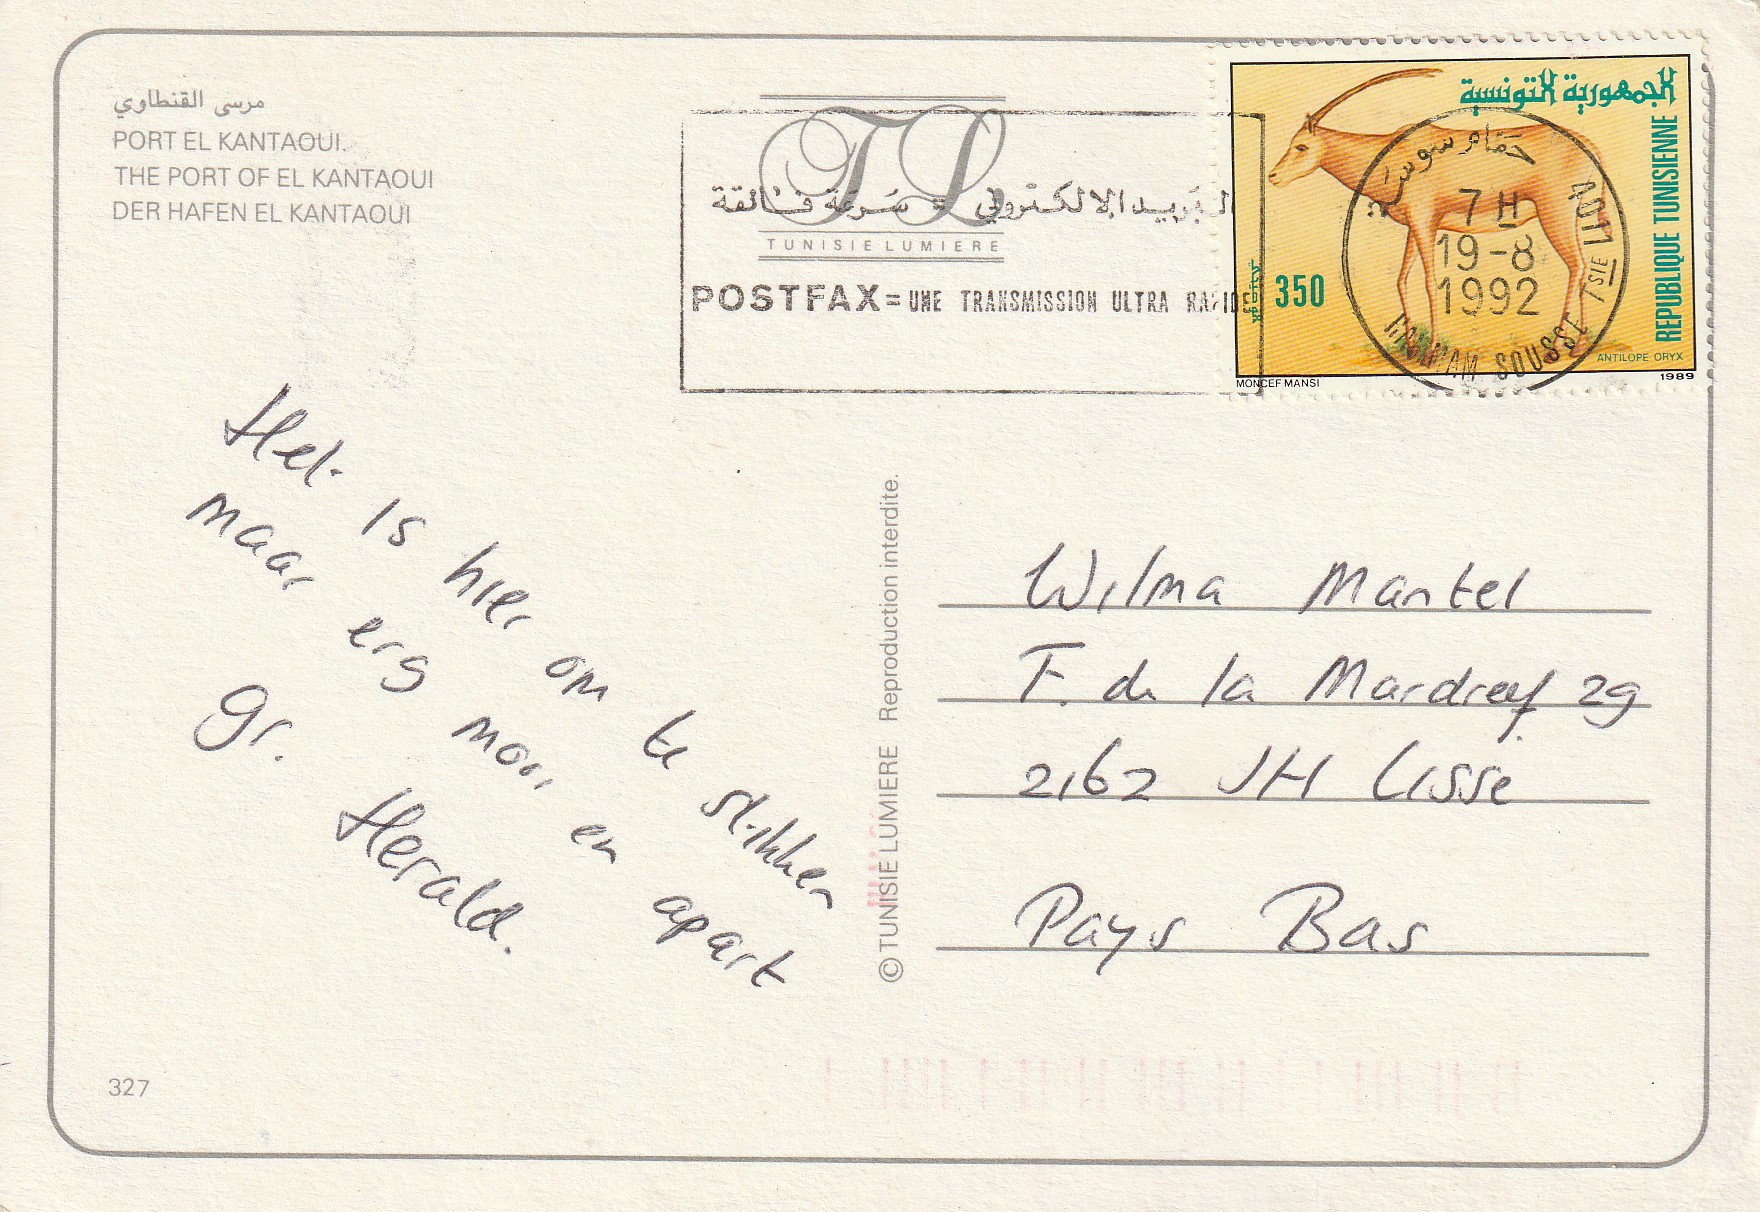 مرسى القنطاوي
PORT EL KANTAOUI.
THE PORT OF EL KANTAOUI
DER HAFEN EL KANTAOUI
TL
TUNISIE LUMIERE
البريد الالكتروني = سرعة فائقة
POSTFAX = UNE TRANSMISSION ULTRA RAPIDE
الجمهورية التونسية
REPUBLIQUE TUNISIENNE
350
ANTILOPE ORYX
MONCEF MANSI
1989
حمام سوسة
7 H
19-8
1992
HAMMAM SOUSSE TSIE
Het is hier om te stikken
maar erg mooi en apart
gr. Herald.
© TUNISIE LUMIERE Reproduction interdite.
Wilma Mantel
F. de la Mardreef 29
2162 JH Lisse
Pays Bas
327